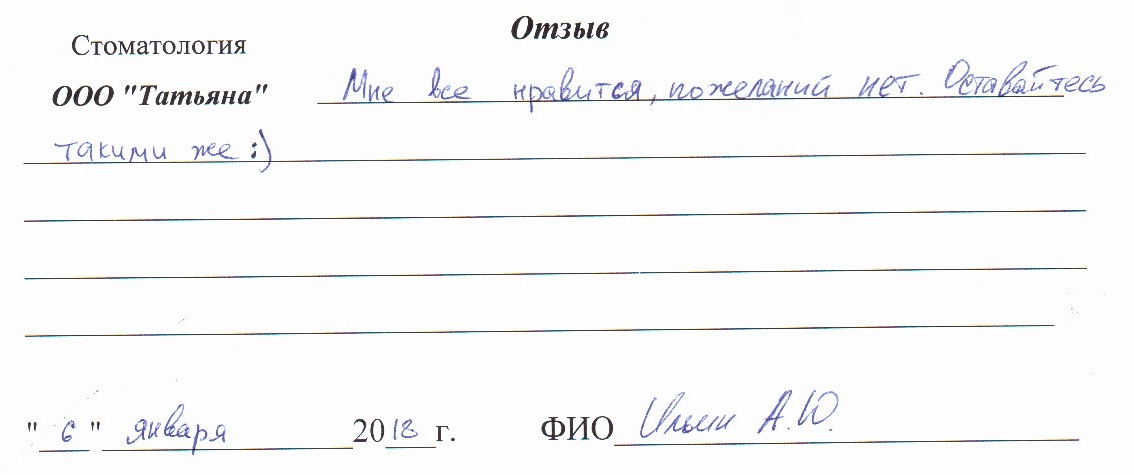 Отзыв
Стоматология
ООО "Татьяна" Мне все нравится, пожеланий нет. Оставайтесь
такими же :)
"6" января 2018 г. ФИО Ильин А.Ю.